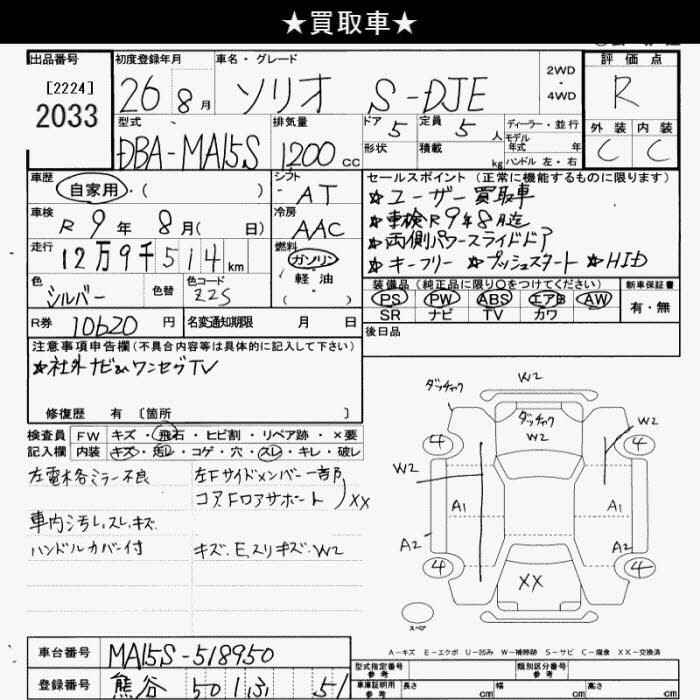 ★買取車★
出品番号
[2224]
2033
初度登録年月
26年 8月
車名・グレード
ソリオ S-DJE
2WD
・
4WD
評価点
R
外装 内装
C C
型式
DBA-MA15S
排気量
1200 cc
ドア 5
定員 5 人
形状
積載 kg
ディーラー・並行
モデル年式 年
ハンドル 左・右
車歴
自家用・( )
シフト
AT
車検
R 9年 8月( 日)
冷房
AAC
走行
12万9千514 km
燃料
ガソリン
軽油
( )
色
シルバー
色替
色コード
Z2S
R券 10620 円
名変通知期限 月 日
セールスポイント(正常に機能するものに限ります)
★ユーザー買取車
★車検R9年8月迄
★両側パワースライドドア
★キーフリー ★プッシュスタート ★HID
装備品(純正品に限り○をつけてください)
PS PW ABS エアB AW
SR ナビ TV カワ
新車保証書
有・無
後日品
注意事項申告欄(不具合内容等は具体的に記入して下さい)
★社外ナビ&ワンセグTV
修復歴 有〔箇所 〕
検査員記入欄
FW キズ・飛石・ヒビ割・リペア跡・×要
内装 キズ・汚レ・コゲ・穴・スレ・キレ・破レ
左電格ミラー不良
車内汚れ、スレ、キズ
ハンドルカバー付
左Fサイドメンバー一部
コアFロアサポート)XX
キズ、E、スリキズ、W2
ダッチャク
W2
ダッチャク
W2
W2
W2
4 4
A1 A1
A2 A2
4 4
XX
スペア
A-キズ E-エクボ U-凹み W-補修跡 S-サビ C-腐食 XX-交換済
車台番号 MA15S-518950
登録番号 熊谷 501 ふ 51
型式指定番号
参考
類別区分番号
参考
車庫証明用
参考
長さ cm
幅 cm
高さ cm